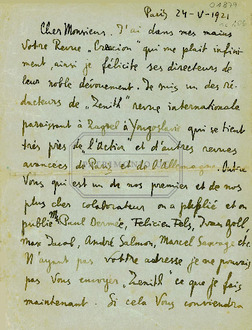 Paris 24-V-1921
Cher Monsieur. J'ai dans mes mains
Votre Revue „Creacion" qui me plait infini-
ment, ainsi je félicite ses directeurs de
leur noble dévouement. Je suis un des ré-
dacteurs de „Zenith" revue internationale
paraissant à Zagreb à Yougoslavie qui se tient
très près de l'Action et d'autres revues
avancées de Paris et de l'Allemagne. Outre
Vous qui est un de nos premier et de nos
plus cher colaborateur on a publié et on
publie Paul Dermée, Felicien Fels, Ivan Goll,
Max Jacob, André Salmon, Marcel Sauvage etc.
N'ayant pas votre adresse je ne pouvais
pas Vous envoyer „Zenith" ce que je fais
maintenant. Si cela Vous conviendra